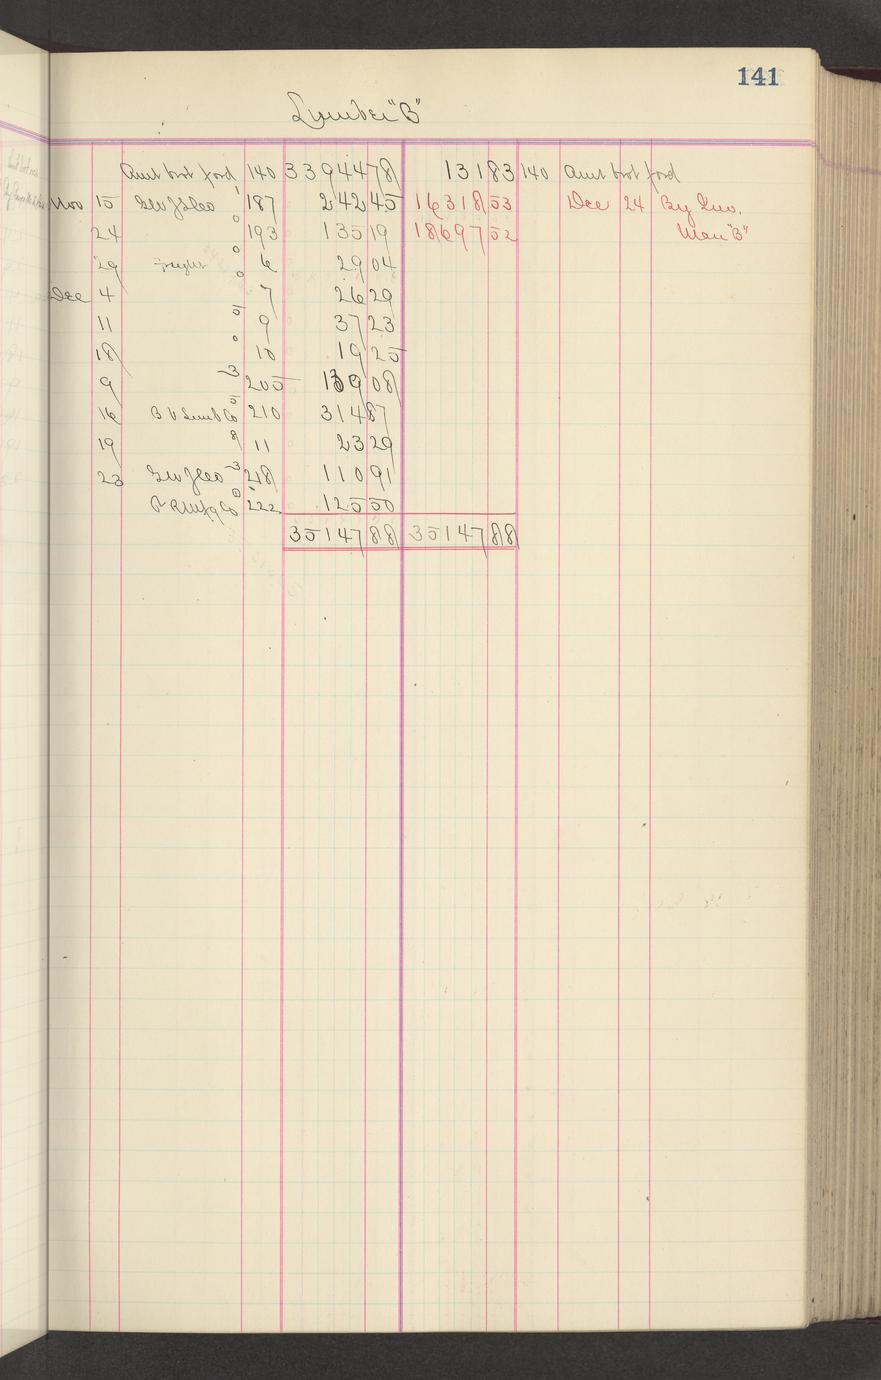 141
Lumber "B"
Amt brot ford 140 33944 78 131 83 140 Amt brot ford
Nov 15 1 187 242 45 16318 53 Dec 24 By Inv.
24 0 193 135 19 18697 52 Man "B"
29 Freight 0 6 29 04
Dec 4 0 7 26 29
11 5 9 37 23
18 0 10 19 25
9 3 205 139 08
16 B V Lumb Co 5 210 314 87
19 8 11 23 29
23 3 218 110 91
Co 0 222 125 50
35147 88 35147 88